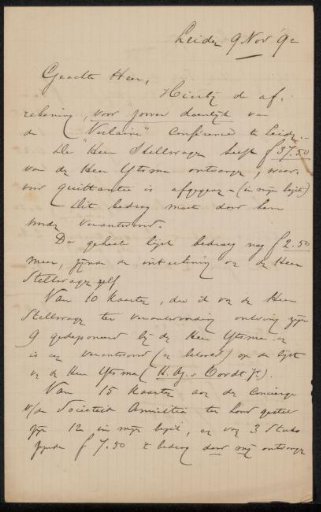 Leiden 9 Nov '92
Geachte Heer,
Hierbij de af-
rekening, voor zoover van
de "Verlaine" conferentie te Leiden.
De Heer Stellwagen heeft f 37.50
van de Heer Ytsma ontvangen, waar-
voor quittantie is afgegeven (in mijn bezit)
Dit bedrag moet door hem
worden verantwoord.
De geheele lijst bedroeg nog f 2.50
meer, zijnde de inteekening van de Heer
Stellwagen zelf
Van 10 kaarten, die ik van de Heer
Stellwagen ter verantwoording ontving zijn
9 gedeponeerd bij de Heer Ytsma en
is een verantwoord (en betaald) op de lijst
van de Heer Ytsma (H. v. Oordt Jr).
Van 15 kaarten aan de Concierge
v/d Societeit Amicitia ter hand gesteld
zijn 12 in mijn bezit, en van 3 stuks
zijnde f 7.50 't bedrag door mij ontvangen